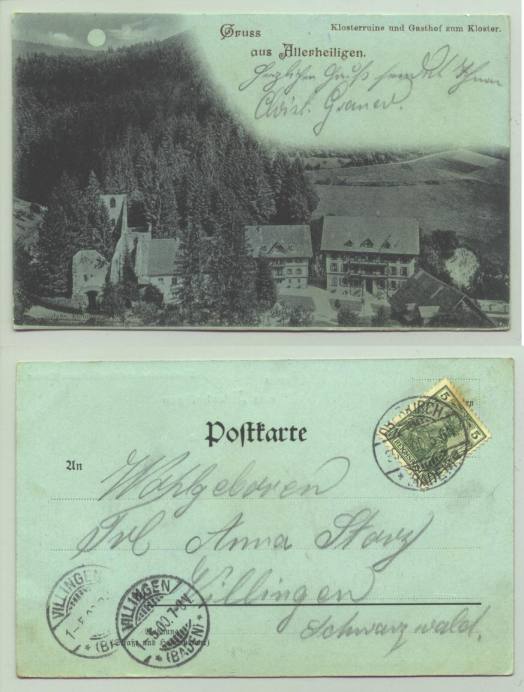 Gruss
aus Allerheiligen.
Klosterruine und Gasthof zum Kloster.
Herzlichen Gruß sendet Ihnen
Postkarte
An
Wohlgeboren
Frl Anna Storz
Villingen
Schwarzwald.
OBERKIRCH
5 5
VILLINGEN
(BADEN)
VILLINGEN